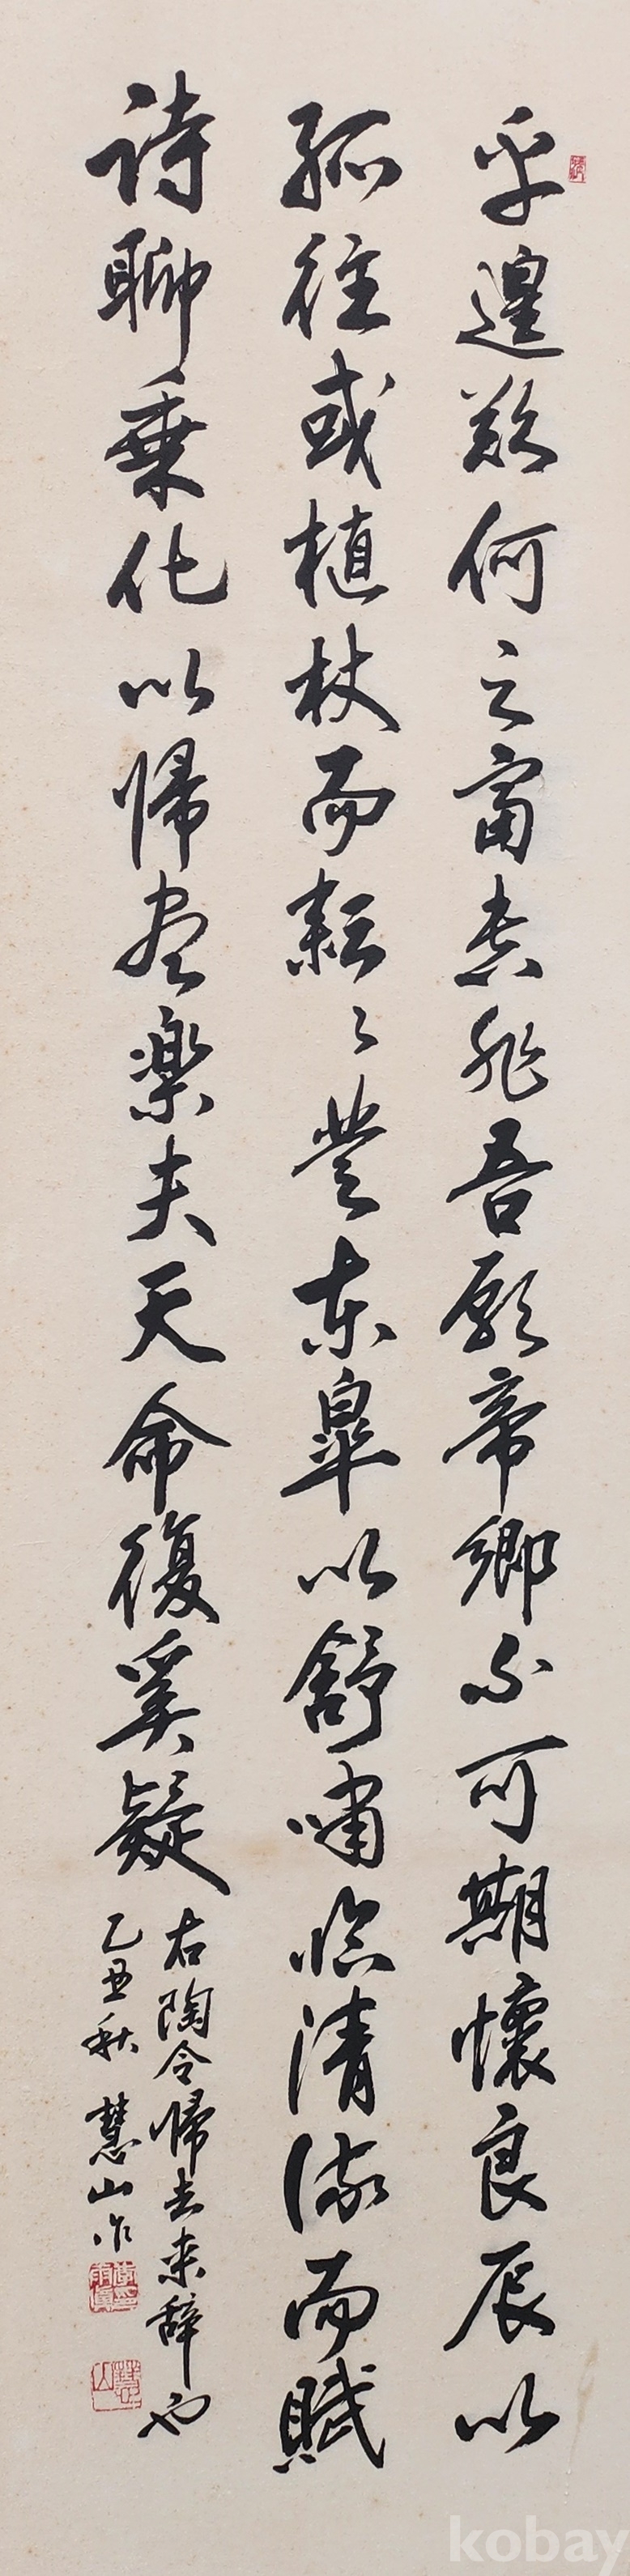 乎遑欲何之富貴非吾願帝鄉不可期懷良辰以
孤往或植杖而耘耔登東皐以舒嘯臨清流而賦
詩聊乗化以歸盡樂夫天命復奚疑
右陶令歸去来辞也
乙丑秋 慧山作
kobay